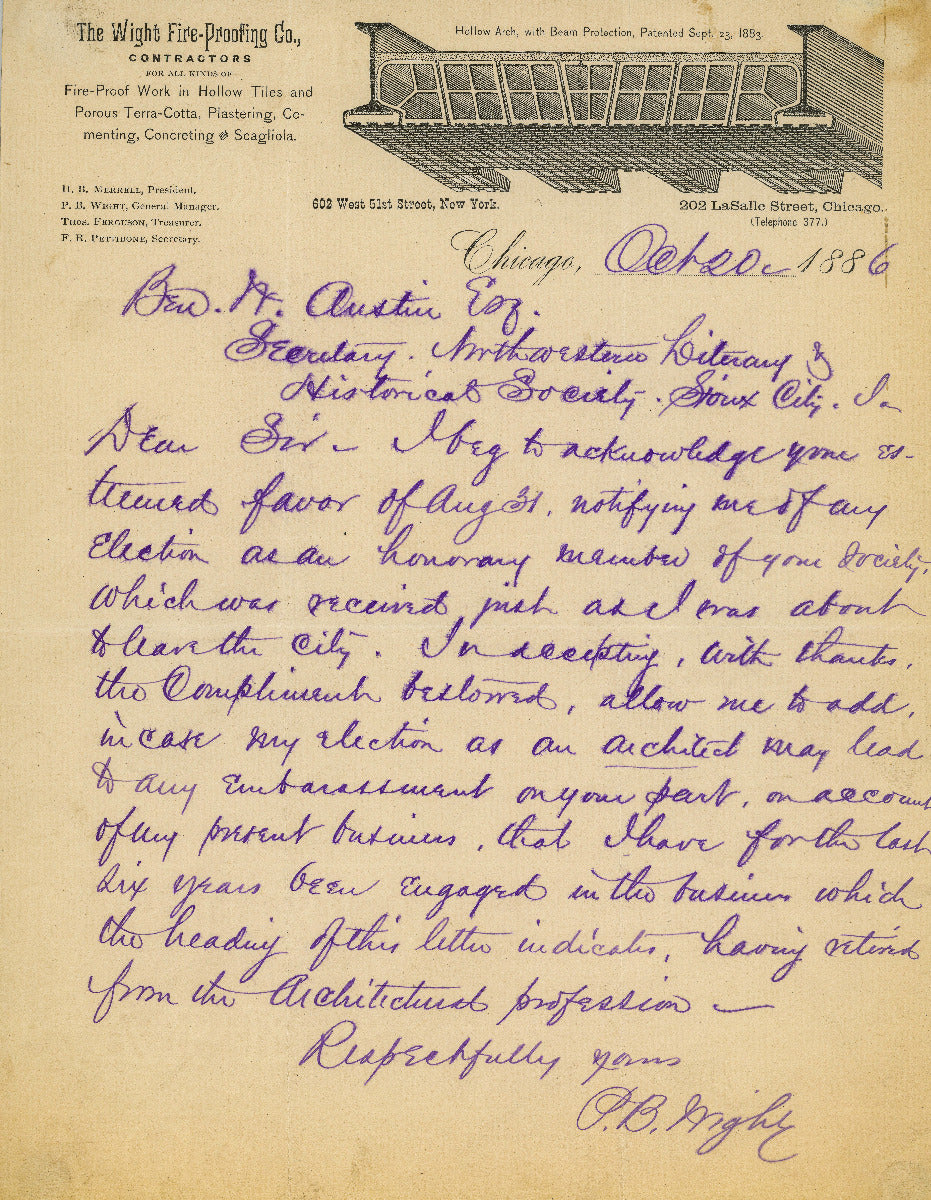 The Wight Fire-Proofing Co.,
CONTRACTORS
FOR ALL KINDS OF
Fire-Proof Work in Hollow Tiles and
Porous Terra-Cotta, Plastering, Ce-
menting, Concreting & Scagliola.
Hollow Arch, with Beam Protection, Patented Sept. 23, 1883.
H. B. MERRELL, President.
P. B. WIGHT, General Manager.
THOS. FERGUSON, Treasurer.
F. R. PETTIBONE, Secretary.
602 West 51st Street, New York.
202 LaSalle Street, Chicago.
(Telephone 377.)
Chicago, Oct 20 1886
Ben. W. Austin Esq.
Secretary. Northwestern Literary &
Historical Society. Sioux City. Ia
Dear Sir – I beg to acknowledge your es-
teemed favor of Aug 31, notifying me of my
election as an honorary member of your Society,
which was received just as I was about
to leave the city. In accepting, with thanks,
the Compliment bestowed, allow me to add,
in case my election as an architect may lead
to any embarassment on your part, on account
of my present business, that I have for the last
six years been engaged in the business which
the heading of this letter indicates, having retired
from the Architectural profession –
Respectfully yours
P. B. Wight